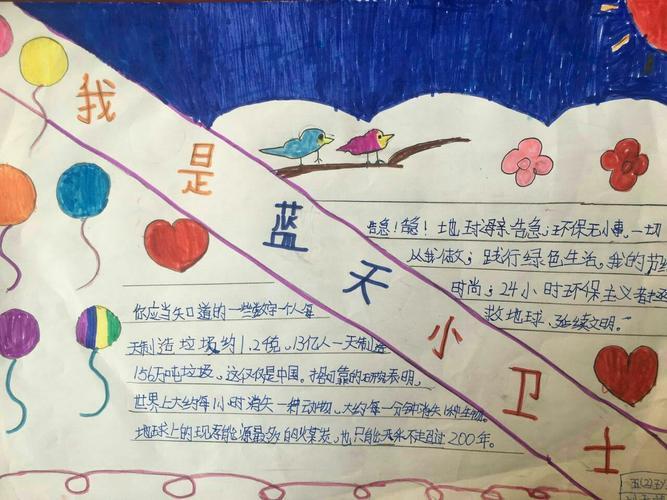 我是蓝天小卫士
告急！告急！地球母亲告急；环保无小事，一切
从我做；践行绿色生活，我的节
时尚；24小时环保主义者
救地球，延续文明。
你应当知道的一些数字一个人每
天制造垃圾约1.2 13亿人一天制造
156万吨垃圾，这仅仅是中国。据可靠的研究表明，
世界上大约每1小时消失一种动物，大约每一分钟消失1种生物。
地球上的现有能源最多
200年。
五(2)